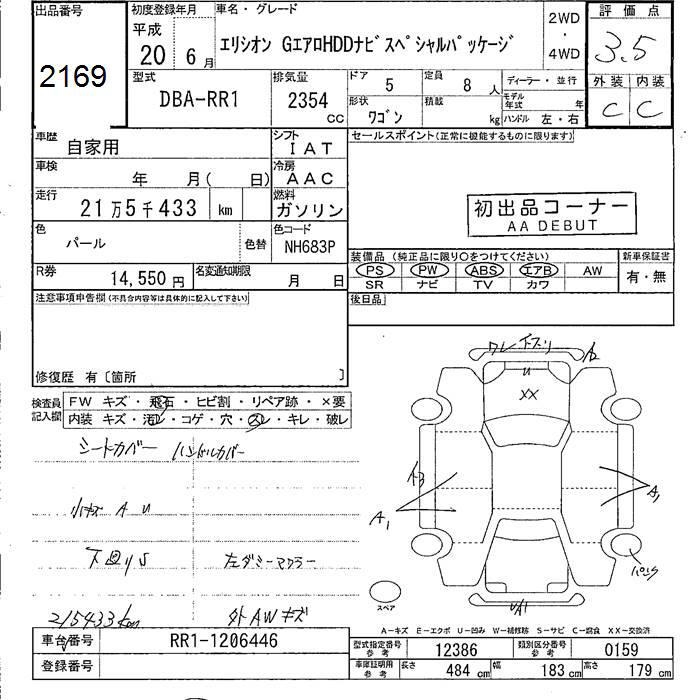 出品番号
2169
初度登録年月
平成
20 6 月
車名・グレード
エリシオン GエアロHDDナビスペシャルパッケージ
2WD
・
4WD
評価点
3.5
外装 内装
C C
型式
DBA-RR1
排気量
2354
CC
ドア
5
定員
8 人
形状
ワゴン
積載
kg
ディーラー・並行
モデル年式 年
ハンドル 左・右
車歴
自家用
シフト
IAT
車検
年 月( 日)
冷房
AAC
走行
21万5千433 km
燃料
ガソリン
色
パール
色替
色コード
NH683P
R券
14,550円
名変通知期限
月 日
セールスポイント(正常に機能するものに限ります)
初出品コーナー
AA DEBUT
装備品 (純正品に限り〇をつけてください)
PS PW ABS エアB AW
SR ナビ TV カワ
新車保証書
有・無
後日品
注意事項申告欄(不具合内容等は具体的に記入して下さい)
修復歴 有〔箇所 〕
検査員
記入欄
FW キズ・飛石・ヒビ割・リペア跡・×要
内装 キズ・汚レ・コゲ・穴・スレ・キレ・破レ
シートカバー ハンドルカバー
小キズ A U
下回りS 左ダミーマフラー
215433km 外AWキズ
ワレ 下スリ
U
XX
A1
A1
UA1
スペア
A-キズ E-エクボ U-凹み W-補修跡 S-サビ C-腐食 XX-交換済
車台番号
RR1-1206446
登録番号
型式指定番号
参考
12386
類別区分番号
参考
0159
車庫証明用
参考
長さ 484 cm
幅 183 cm
高さ 179 cm